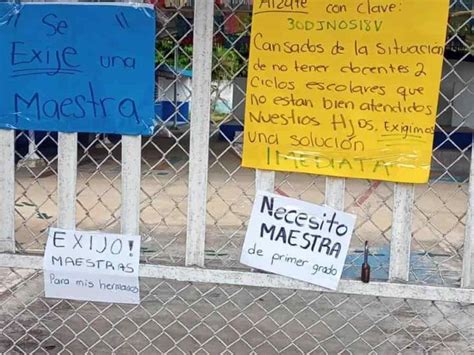 "Se
Exije una
Maestra
Alzate con clave:
30DJN0518V
Cansados de la Situación
de no tener docentes 2
Ciclos escolares que
no estan bien atendidos
Nuestros Hijos, Exigimos
una solución
IMEDIATA
EXIJO!
MAESTRAS
Para mis hermanos
Necesito
MAESTRA
de primer grado